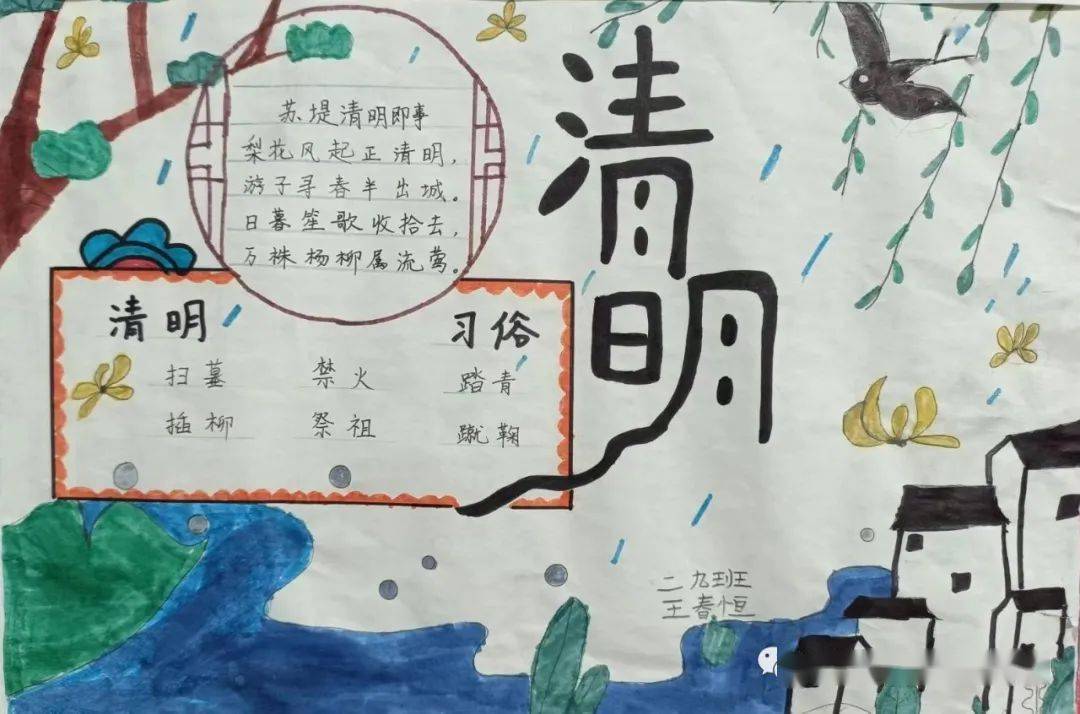 苏堤清明即事
梨花风起正清明，
游子寻春半出城。
日暮笙歌收拾去，
万株杨柳属流莺。
清明
清明 习俗
扫墓 禁火 踏青
插柳 祭祖 蹴鞠
二九班
王春恒